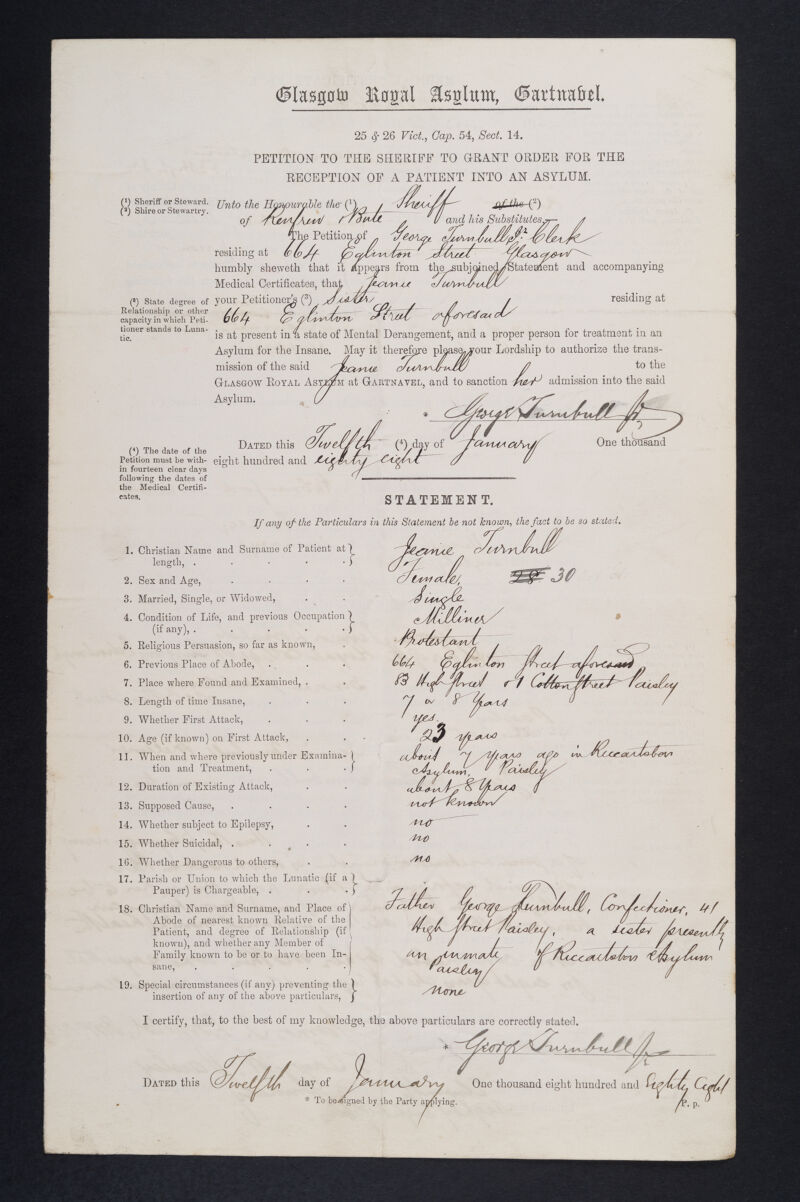 Glasgow Royal Asylum, Gartnabel.
25 & 26 Vict., Cap. 54, Sect. 14.
PETITION TO THE SHERIFF TO GRANT ORDER FOR THE
RECEPTION OF A PATIENT INTO AN ASYLUM.
(1) Sheriff or Steward.
(2) Shire or Stewartry.
Unto the Honourable the (1) Sheriff of the (2)
of Renfrew & Bute and his Substitutes
The Petition of George Turnbull Jr. Clerk
residing at 664 Eglinton Street Glasgow
humbly sheweth that it appears from the subjoined Statement and accompanying
Medical Certificates, that Jeanie Turnbull
(3) State degree of
Relationship or other
capacity in which Peti-
tioner stands to Luna-
tic.
your Petitioner's (3) Sister residing at
664 Eglinton Street aforesaid
is at present in a state of Mental Derangement, and a proper person for treatment in an
Asylum for the Insane. May it therefore please your Lordship to authorize the trans-
mission of the said Jeanie Turnbull to the
GLASGOW ROYAL ASYLUM at GARTNAVEL, and to sanction her admission into the said
Asylum.
* George Turnbull Jr
(4) The date of the
Petition must be with-
in fourteen clear days
following the dates of
the Medical Certifi-
cates.
DATED this Twelfth (4) day of January One thousand
eight hundred and eighty eight
STATEMENT.
If any of the Particulars in this Statement be not known, the fact to be so stated.
1. Christian Name and Surname of Patient at
length, . . . . . Jeanie Turnbull
2. Sex and Age, . . . . Female, 28 30
3. Married, Single, or Widowed, . . Single
4. Condition of Life, and previous Occupation
(if any), . . . . . Milliner
5. Religious Persuasion, so far as known, . Protestant
6. Previous Place of Abode, . . . 664 Eglinton Street aforesaid
7. Place where Found and Examined, . . 83 High Street & 1 Cotton Street Paisley
8. Length of time Insane, . . . 7 or 8 Years
9. Whether First Attack, . . . yes
10. Age (if known) on First Attack, . . . 23 years
11. When and where previously under Examina-
tion and Treatment, . . . about 7 years ago in Riccartsbar
Asylum, Paisley
12. Duration of Existing Attack, . . about 8 Years
13. Supposed Cause, . . . . not known
14. Whether subject to Epilepsy, . . no
15. Whether Suicidal, . . . . no
16. Whether Dangerous to others, . . no
17. Parish or Union to which the Lunatic (if a
Pauper) is Chargeable, . . . —
18. Christian Name and Surname, and Place of
Abode of nearest known Relative of the
Patient, and degree of Relationship (if
known), and whether any Member of
Family known to be or to have been In-
sane, . . . . .
Father George Turnbull, Confectioner, 41
High Street Paisley, a sister presently
an inmate of Riccartsbar Asylum
Paisley
19. Special circumstances (if any) preventing the
insertion of any of the above particulars, none
I certify, that, to the best of my knowledge, the above particulars are correctly stated.
* George Turnbull Jr
DATED this Twelfth day of January One thousand eight hundred and Eighty Eight
* To be signed by the Party applying.
P. p.